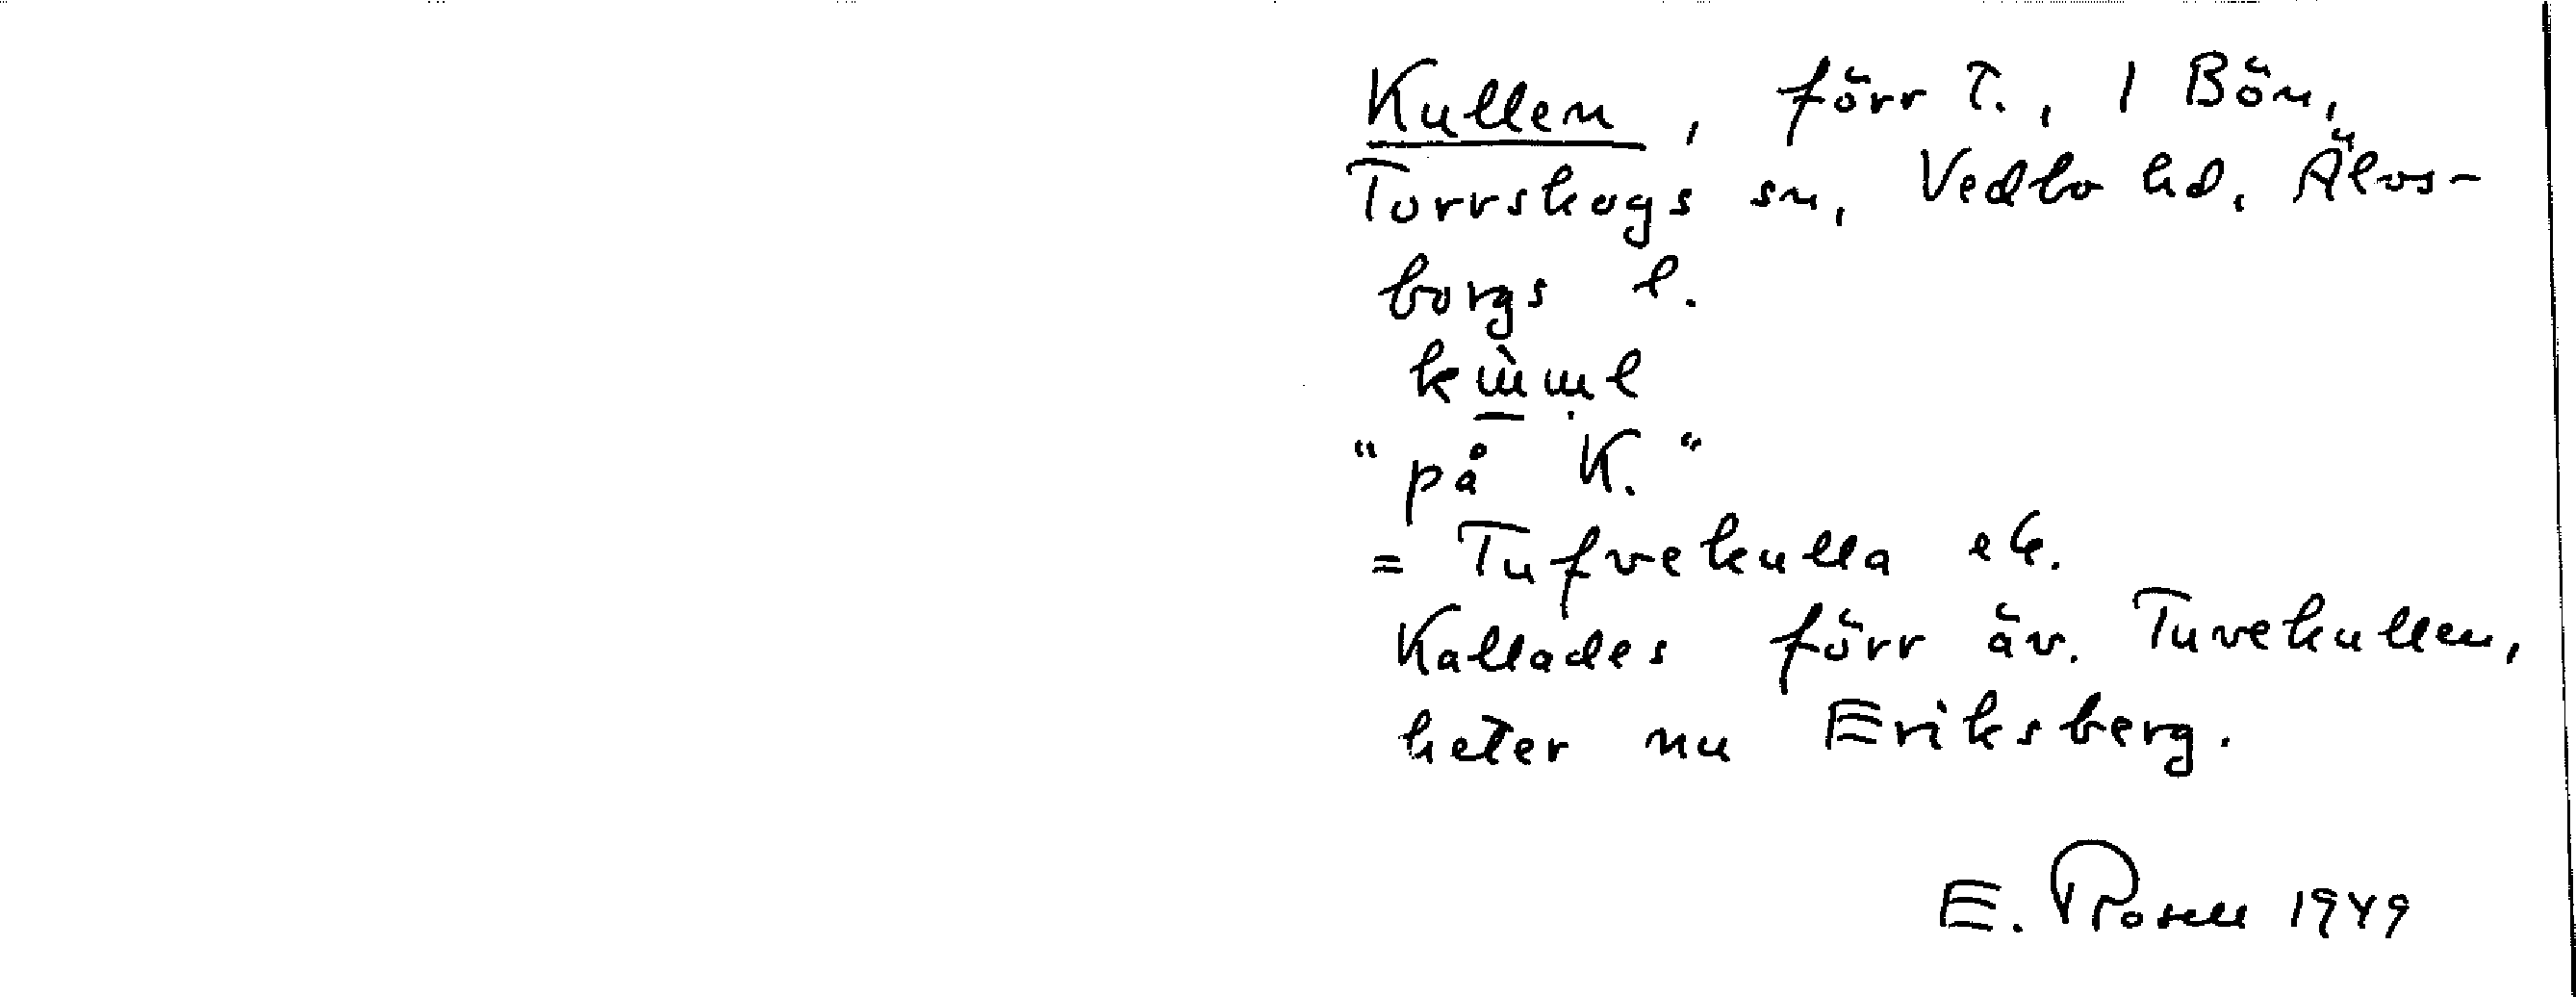 Kullen, förr T., 1 Bön,
Torrskogs sn, Vedbo hd, Älvs-
borgs l.
"på K."
= Tufvekulla ek.
Kallades förr äv. Tuvekullen,
heter nu Eriksberg.
E. Rosell 1949